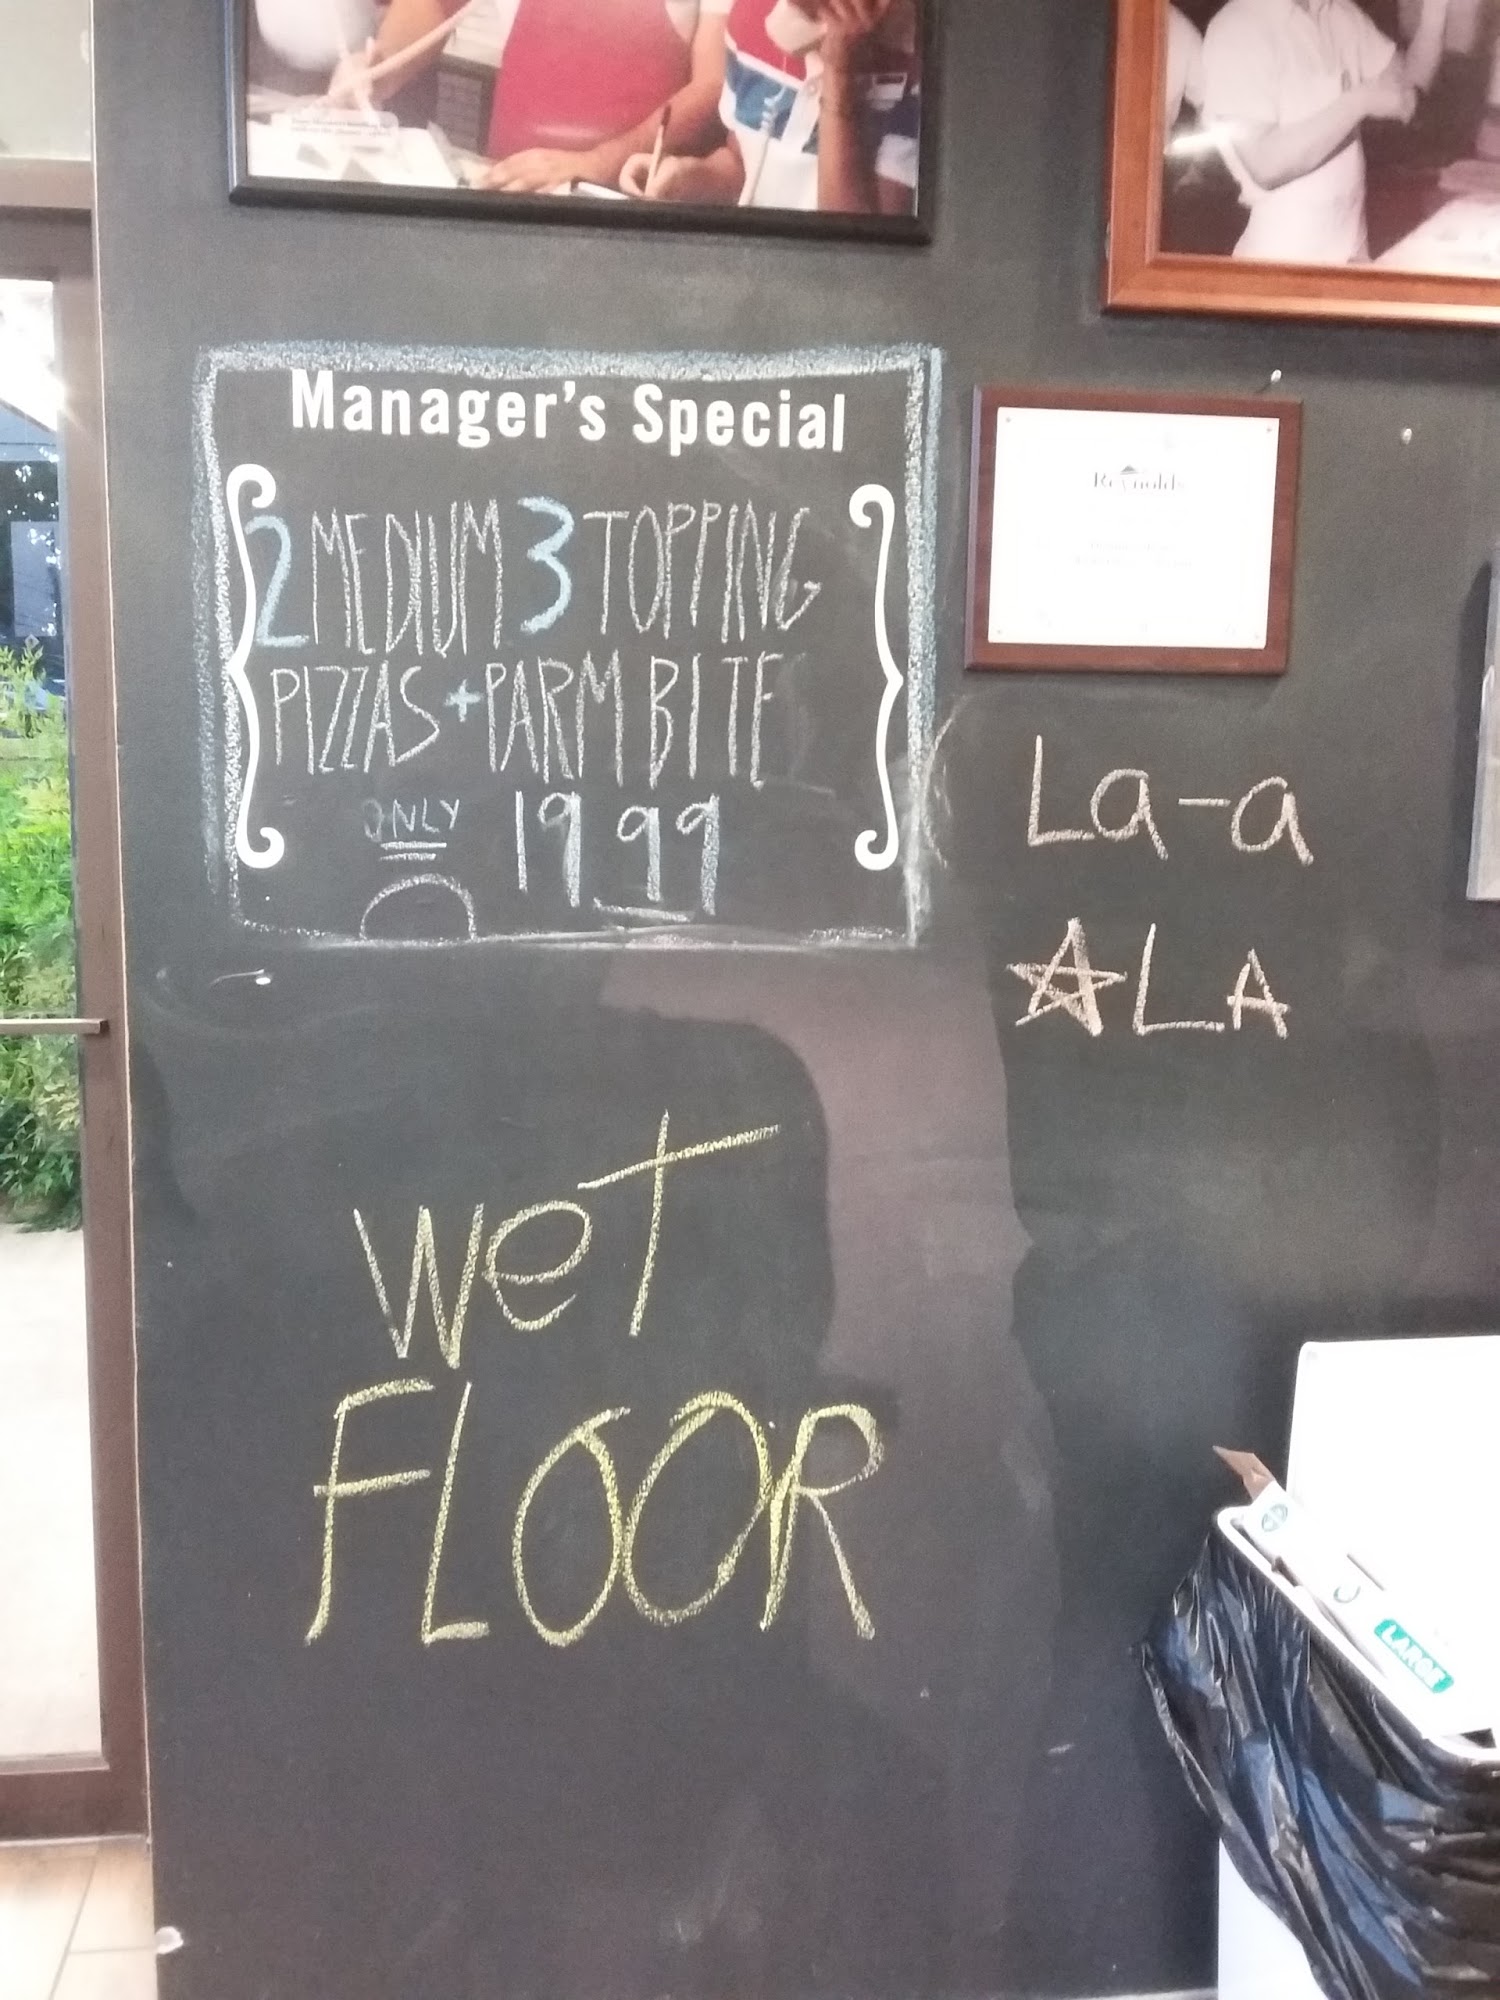 Manager's Special
2 MEDIUM 3 TOPPING
PIZZAS + PARM BITE
ONLY 19.99
Reynolds
La-a
LA
WeT
FLOOR
LARGE